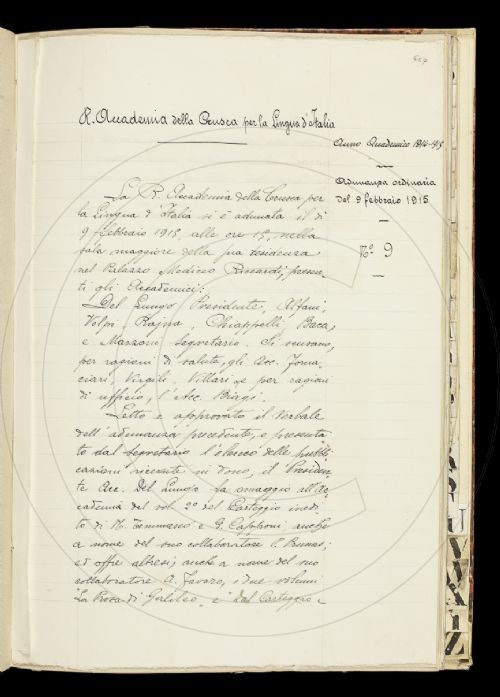 R. Accademia della Crusca per la Lingua d'Italia
Anno Accademico 1914-915
Adunanza ordinaria
del 9 febbraio 1915
N.o 9
La R. Accademia della Crusca per
la Lingua d'Italia si è adunata il dì
9 febbraio 1915, alle ore 15, nella
sala maggiore della sua residenza
nel Palazzo Mediceo Riccardi, presen-
ti gli Accademici:
Del Lungo Presidente, Alfani,
Volpi, Rajna, Chiappelli, Bacci,
e Mazzoni Segretario. Si scusano,
per ragioni di salute, gli Acc. Torna-
ciari, Virgili, Villari, e per ragioni
di ufficio, l'Acc. Biagi.
Letto e approvato il verbale
dell'adunanza precedente, e presenta-
to dal Segretario l'elenco delle pubbli-
cazioni ricevute in dono, il Presiden-
te Acc. Del Lungo fa omaggio all'Ac-
cademia del vol. 2o del Carteggio inedi-
to di N. Tommaseo e G. Capponi anche
a nome del suo collaboratore P. Prunas;
ed offre altresì, anche a nome del suo
collaboratore A. Favaro, i due volumi
"La Prosa di Galileo" e "Dal Carteggio